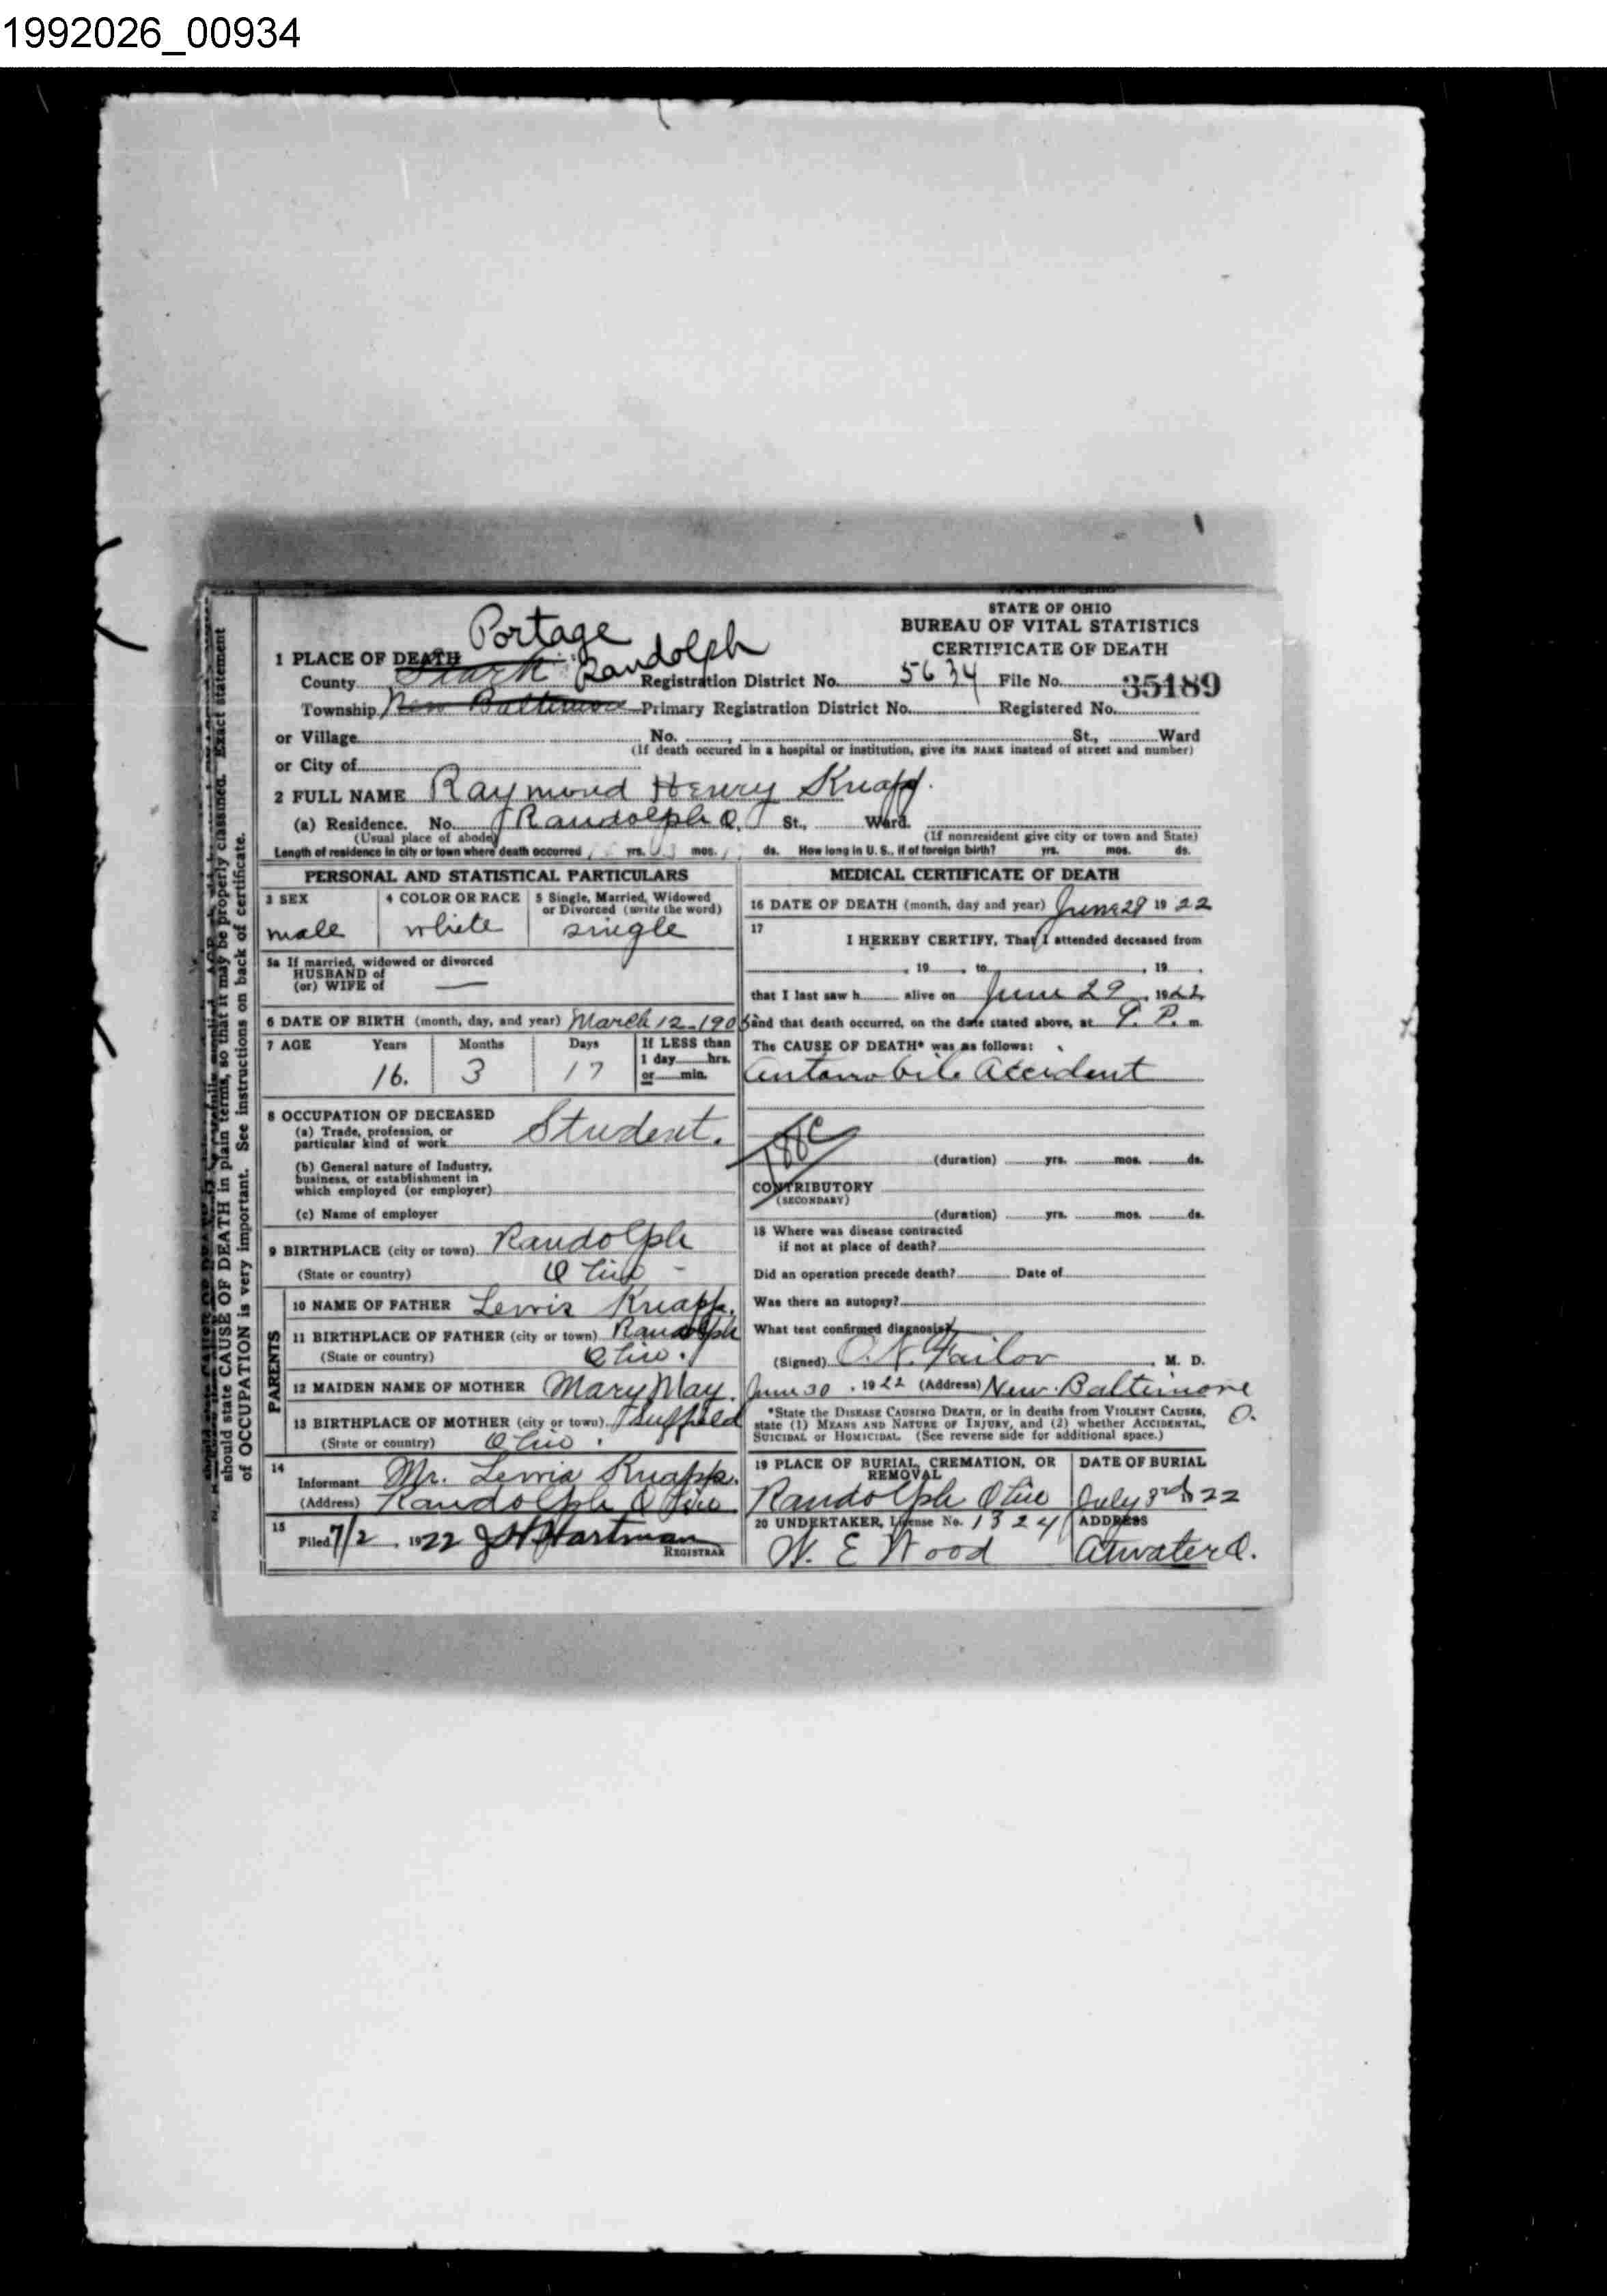 1992026_00934
STATE OF OHIO
BUREAU OF VITAL STATISTICS
CERTIFICATE OF DEATH
Portage
1 PLACE OF DEATH
County Stark Randolph Registration District No. 5634 File No. 35189
Township New Baltimore Primary Registration District No. Registered No.
or Village No. St., Ward
(If death occured in a hospital or institution, give its NAME instead of street and number)
or City of
2 FULL NAME Raymond Henry Knapp.
(a) Residence. No. Randolph O. St., Ward.
(Usual place of abode) (If nonresident give city or town and State)
Length of residence in city or town where death occurred yrs. 3 mos. ds. How long in U. S., if of foreign birth? yrs. mos. ds.
PERSONAL AND STATISTICAL PARTICULARS
3 SEX
male
4 COLOR OR RACE
white
5 Single, Married, Widowed
or Divorced (write the word)
single
5a If married, widowed or divorced
HUSBAND of
(or) WIFE of —
6 DATE OF BIRTH (month, day, and year) March 12-1906
7 AGE Years Months Days If LESS than
1 day hrs.
or min.
16. 3 17
8 OCCUPATION OF DECEASED
(a) Trade, profession, or
particular kind of work Student.
(b) General nature of Industry,
business, or establishment in
which employed (or employer)
(c) Name of employer
9 BIRTHPLACE (city or town) Randolph
(State or country) Ohio -
PARENTS
10 NAME OF FATHER Lewis Knapp.
11 BIRTHPLACE OF FATHER (city or town) Randolph
(State or country) Ohio.
12 MAIDEN NAME OF MOTHER Mary May.
13 BIRTHPLACE OF MOTHER (city or town) Suffield
(State or country) Ohio.
14
Informant Mr. Lewis Knapp.
(Address) Randolph Ohio
15
Filed 7/2, 1922 J H Hartman
REGISTRAR
MEDICAL CERTIFICATE OF DEATH
16 DATE OF DEATH (month, day and year) June 29 1922
17
I HEREBY CERTIFY, That I attended deceased from
, 19 to , 19 ,
that I last saw h alive on June 29, 1922
and that death occurred, on the date stated above, at 9. P. m.
The CAUSE OF DEATH* was as follows:
Automobile Accident
(duration) yrs. mos. ds.
CONTRIBUTORY
(SECONDARY)
(duration) yrs. mos. ds.
18 Where was disease contracted
if not at place of death?
Did an operation precede death? Date of
Was there an autopsy?
What test confirmed diagnosis?
(Signed) , M. D.
June 30, 1922 (Address) New Baltimore
O.
*State the DISEASE CAUSING DEATH, or in deaths from VIOLENT CAUSES,
state (1) MEANS AND NATURE OF INJURY, and (2) whether ACCIDENTAL,
SUICIDAL or HOMICIDAL (See reverse side for additional space.)
19 PLACE OF BURIAL, CREMATION, OR
REMOVAL
Randolph Ohio
DATE OF BURIAL
July 3rd 1922
20 UNDERTAKER, License No. 1324
W. E Wood
ADDRESS
Atwater O.
should state CAUSE OF DEATH in plain terms, so that it may be properly classified. Exact statement
of OCCUPATION is very important. See instructions on back of certificate.